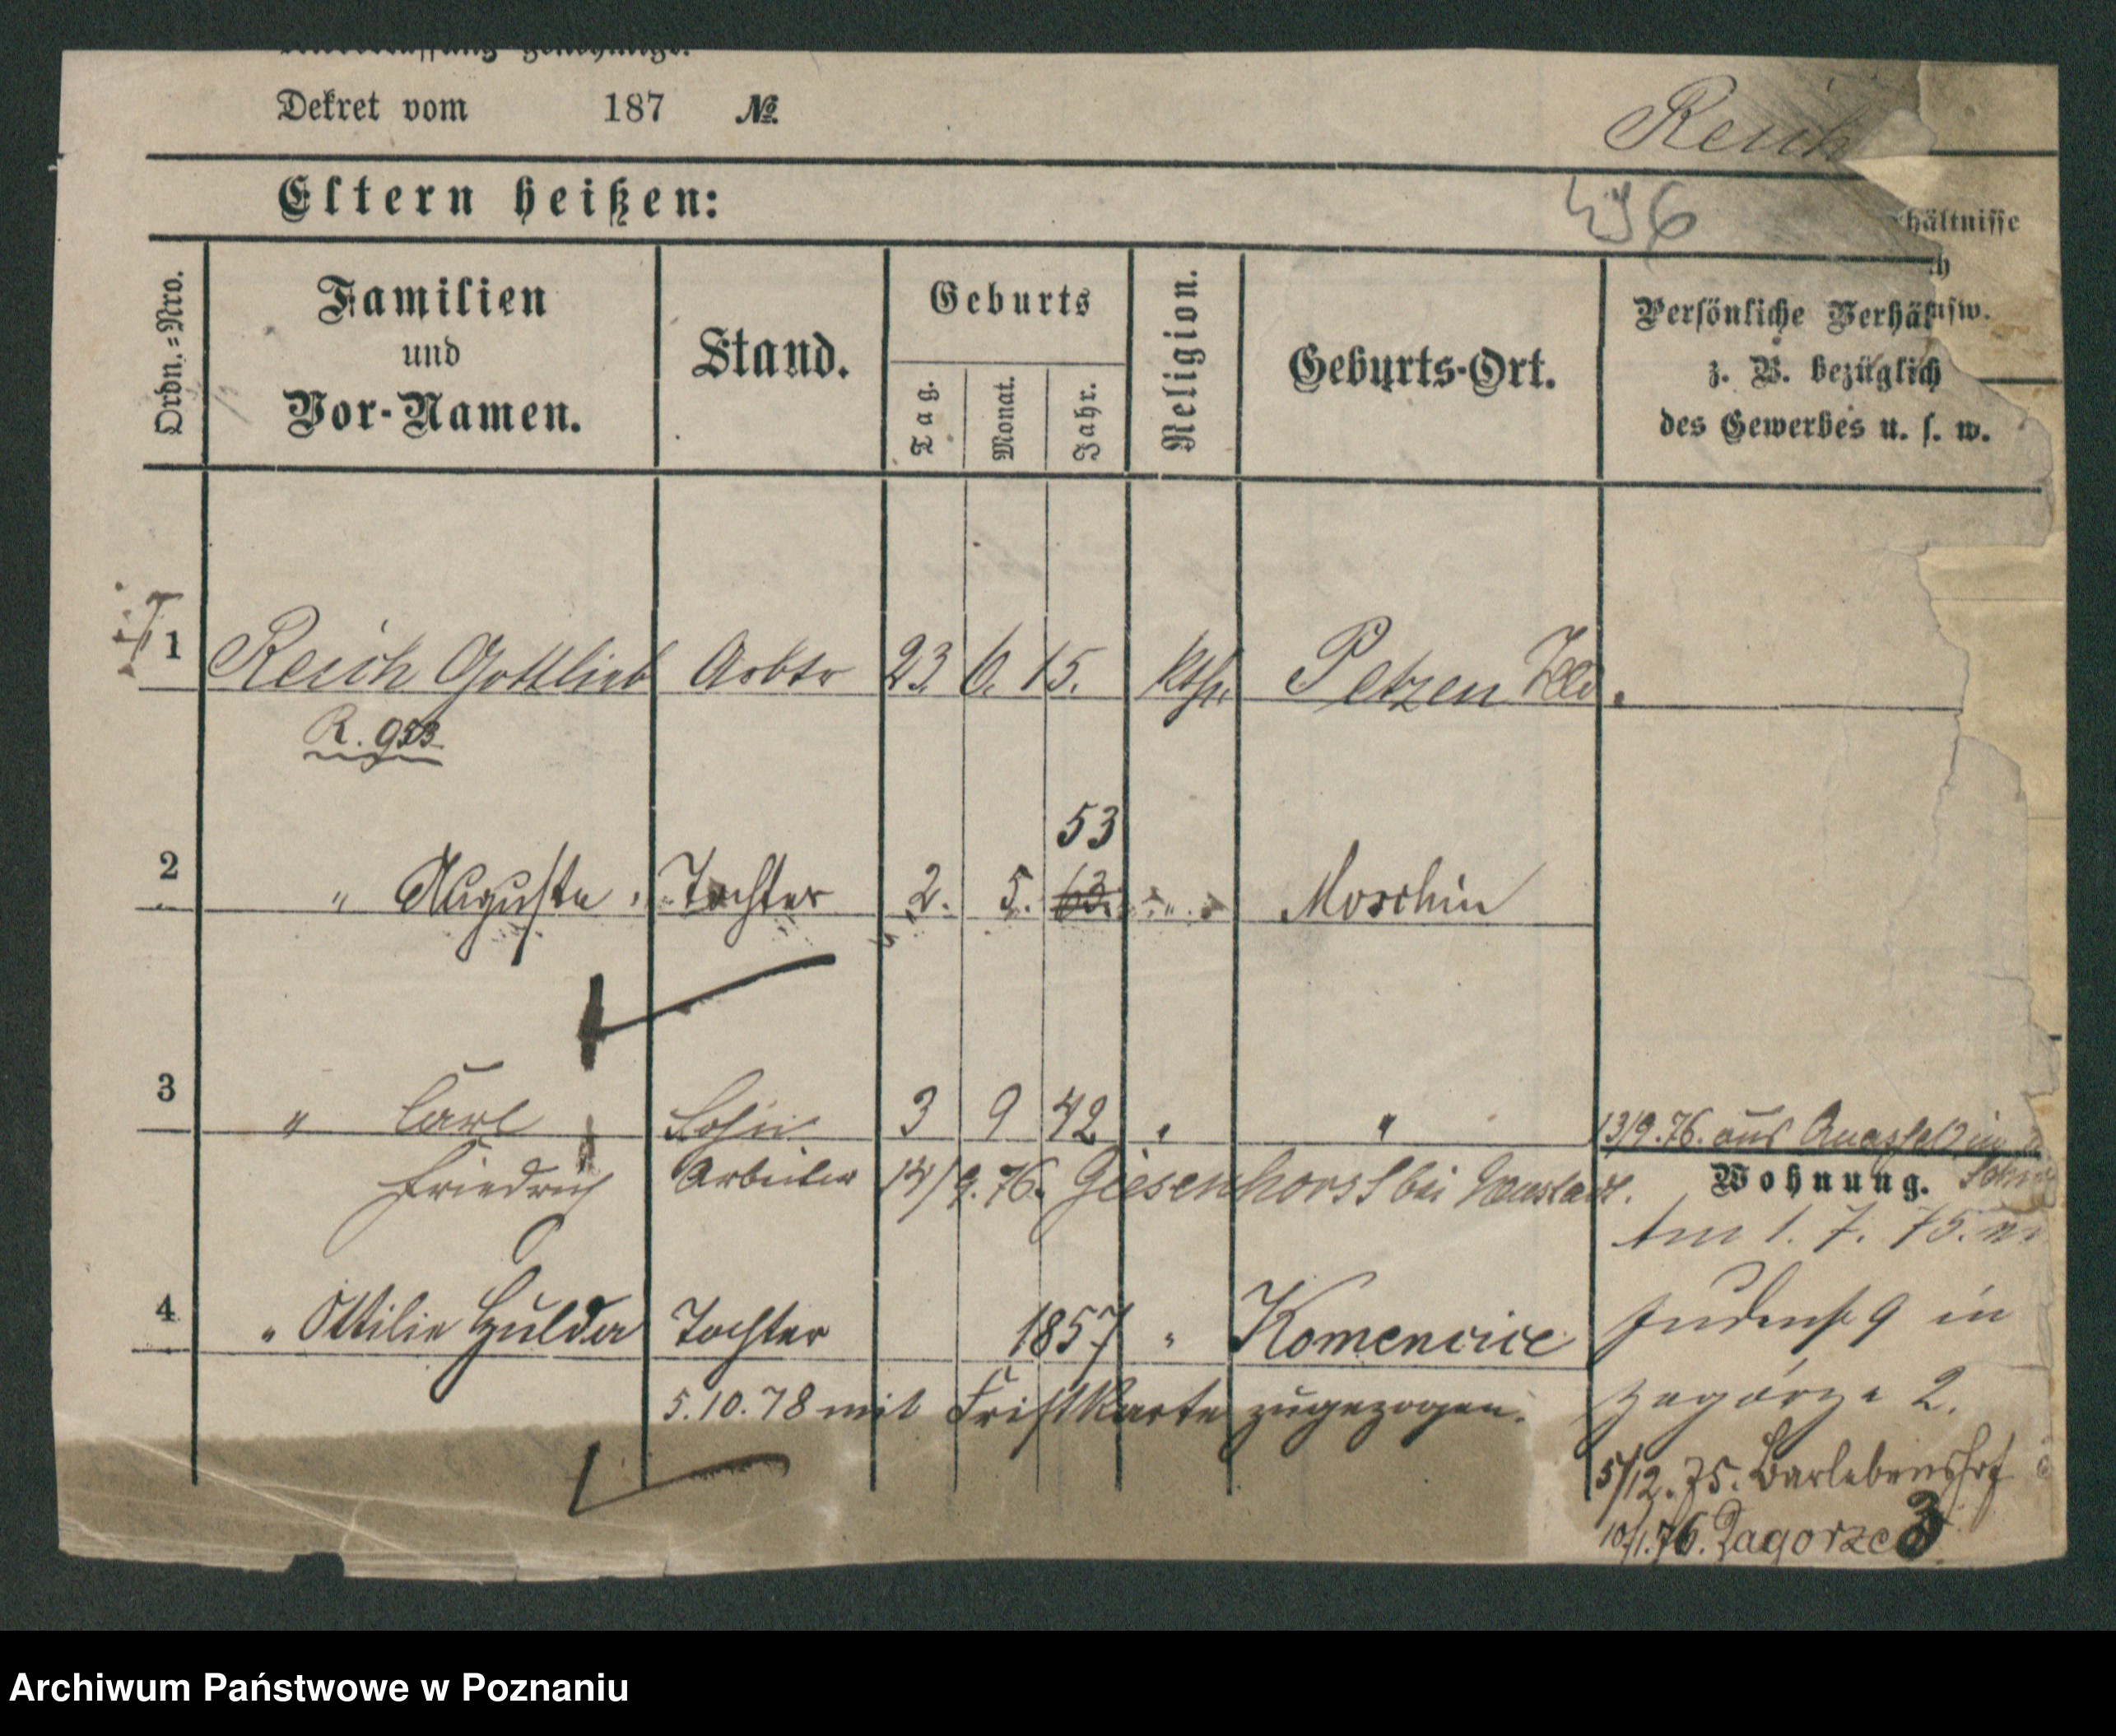 Dekret vom 187 №
Reich
Eltern heißen:
496
hältnisse
Ordn.=Nro.
Familien
und
Vor-Namen.
Stand.
Geburts
Tag.
Monat.
Jahr.
Religion.
Geburts-Ort.
Persönliche Verhä
usw.
z. B. bezüglich
des Gewerbes u. s. w.
1 Reich Gottlieb Arbtr 23. 6. 15. kth. Petzen
R. 953
53
2 " Auguste Tochter 2. 5. 63. " Moschin
3 " Carl Sohn 3 9 42 " " 13/9.76. aus
Friedrich Arbeiter 14/9.76. Giesenhorst bei Neustadt.
Wohnung.
Am 1. 7. 75.
4 " Ottilie Hulda Tochter 1857 " Komencice
Judenst 9 in
5.10.78 mit Fristkarte zugezogen.
Zagórze 2.
5/12.75. Barlebenshof
10/1.76. Zagorze 3
Archiwum Państwowe w Poznaniu